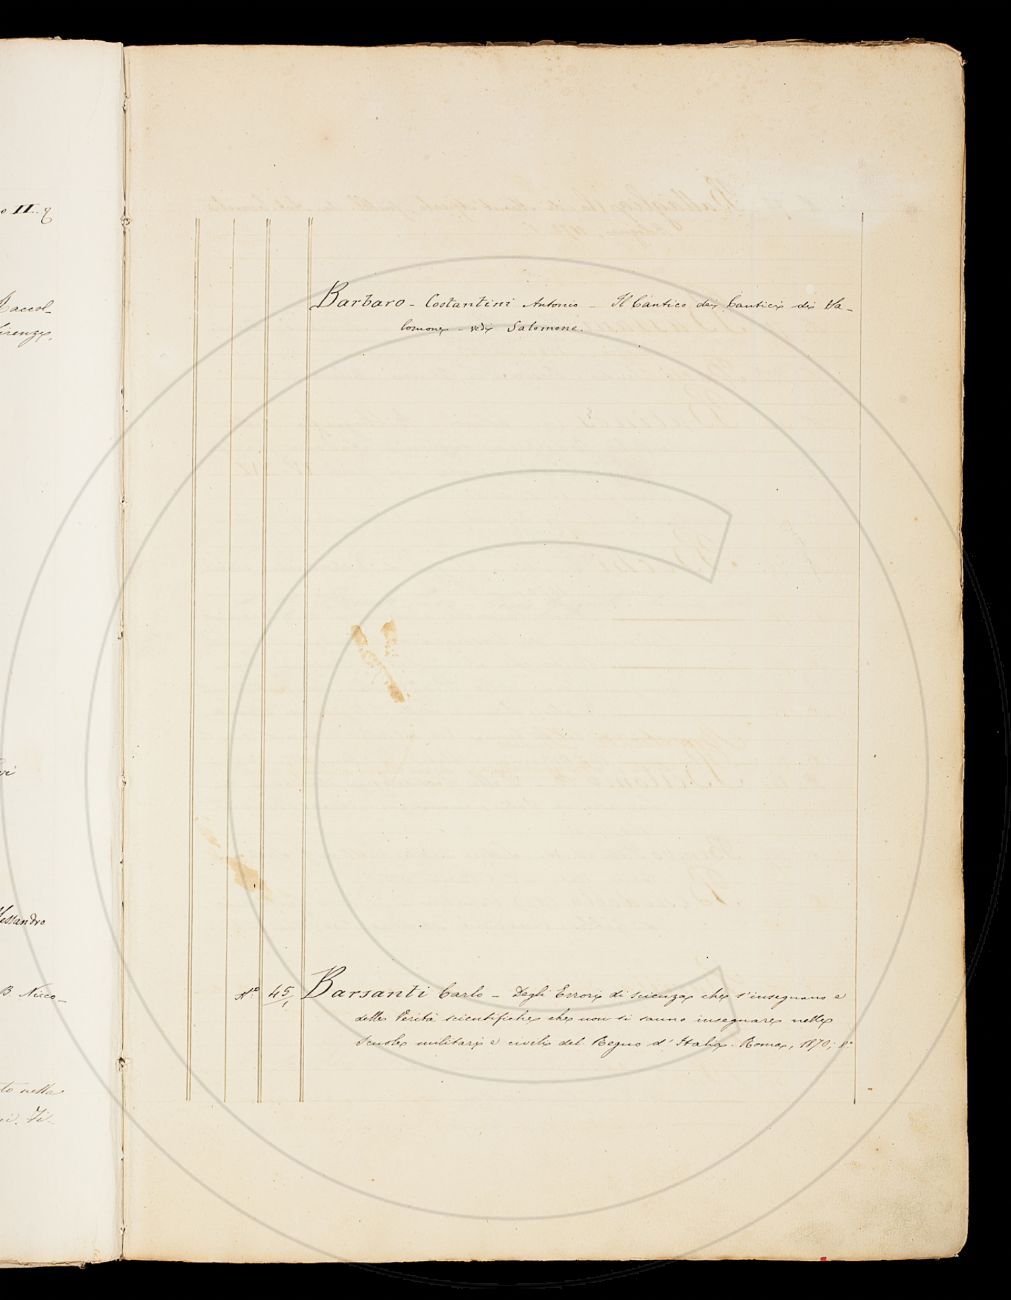 o II. q
Raccol_
irenze,
Barbaro - Costantini Antonio - Il Cantico dei Cantici di Sa_
lomone - vedi Salomone.
vi
lessandro
B Nicco_
N° 45/1 Barsanti Carlo - Degli Errori di scienza che s'insegnano e
delle Verità scientifiche che non si sanno insegnare nelle
Scuole militari e civili del Regno d'Italia. Roma, 1870; 8°
to nella